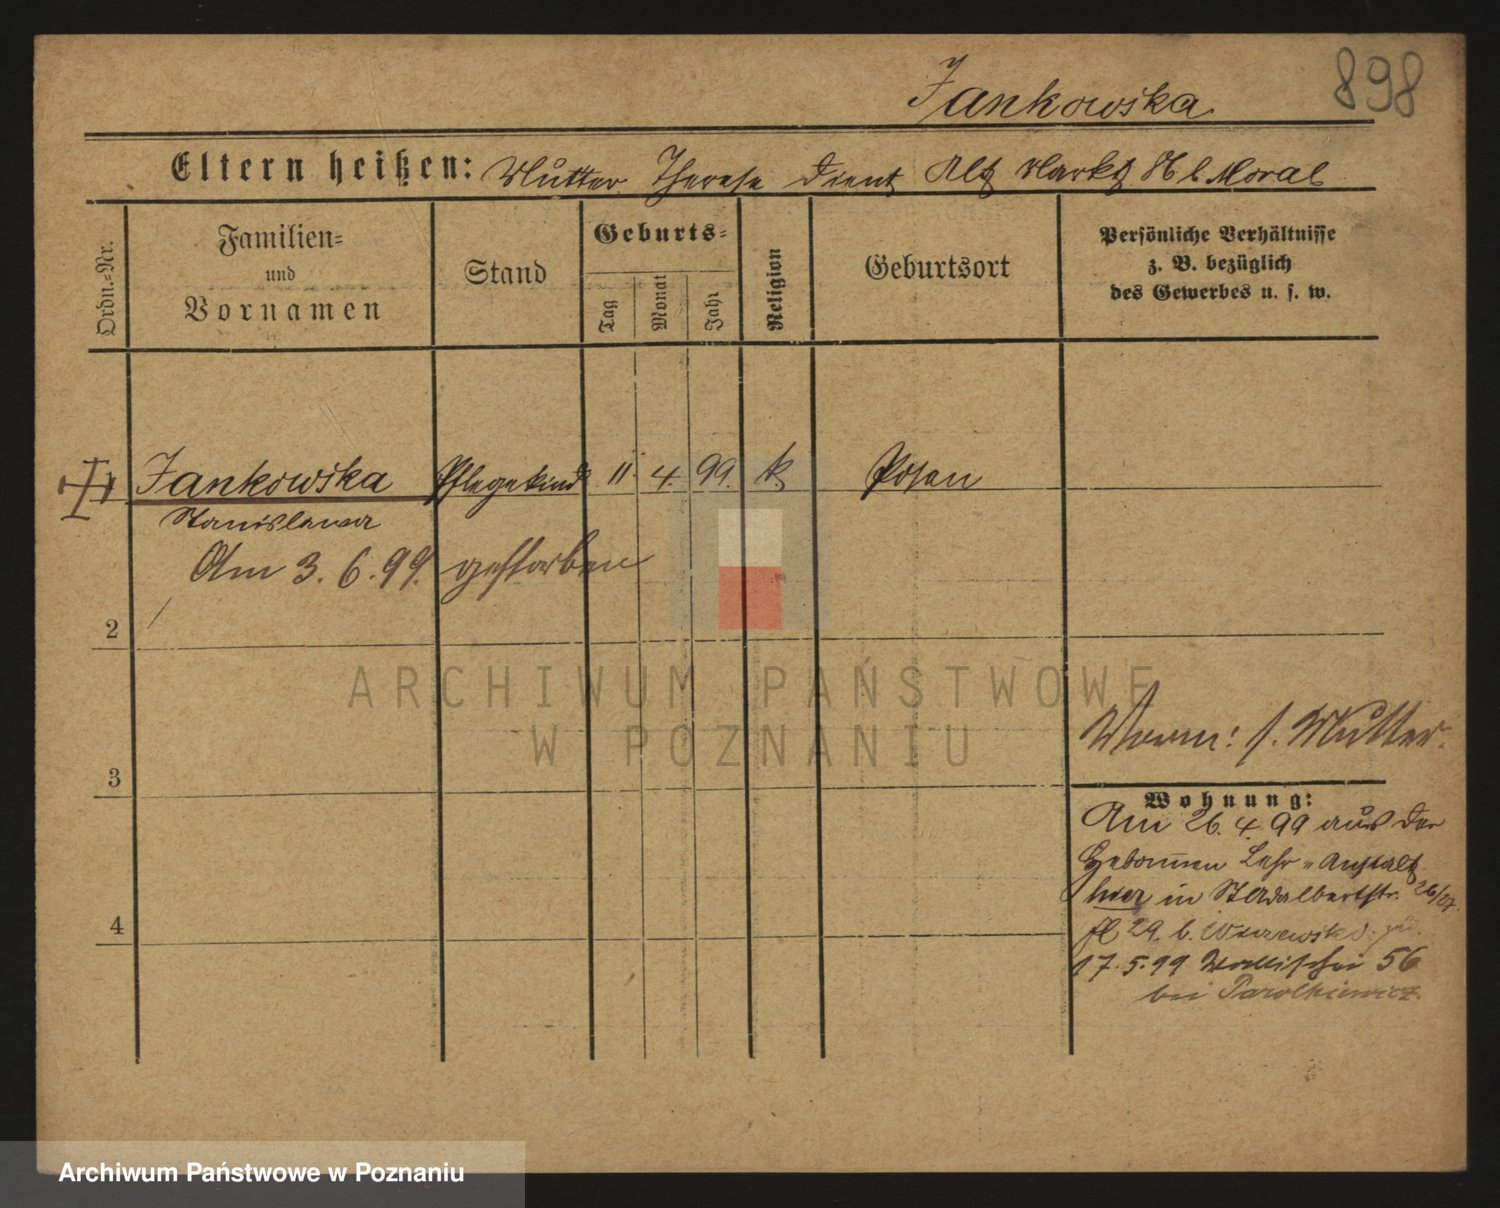 898
Jankowska
Eltern heißen: Mutter Therese dient Alt Markt 81 b. Moral
Ordn.-Nr.
Familien- und Vornamen
Stand
Geburts-
Tag
Monat
Jahr
Religion
Geburtsort
Persönliche Verhältnisse
z. B. bezüglich
des Gewerbes u. s. w.
Jankowska Pflegekind 11. 4. 99. k Posen
Stanislawa
Am 3. 6. 99. gestorben
2
ARCHIWUM PAŃSTWOWE
W POZNANIU
3
4
Vorm: s. Mutter.
Wohnung:
Am 26. 4. 99 aus der
Hebammen Lehr-Anstalt
hier in St. Adalbertstr. 26/27
29. b.
17. 5. 99 Wallischei 56
bei
Archiwum Państwowe w Poznaniu